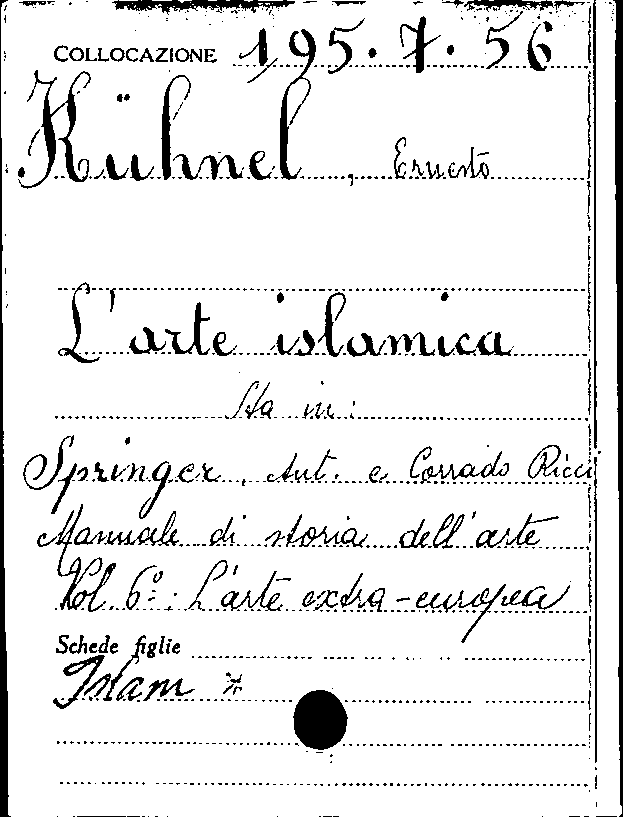 COLLOCAZIONE 195.7.56
Kühnel, Ernesto
L'arte islamica
Sta in:
Springer, Ant. e Corrado Ricci
Manuale di storia dell'arte
Vol. 6º: L'arte extra-europea
Schede figlie
Islam *